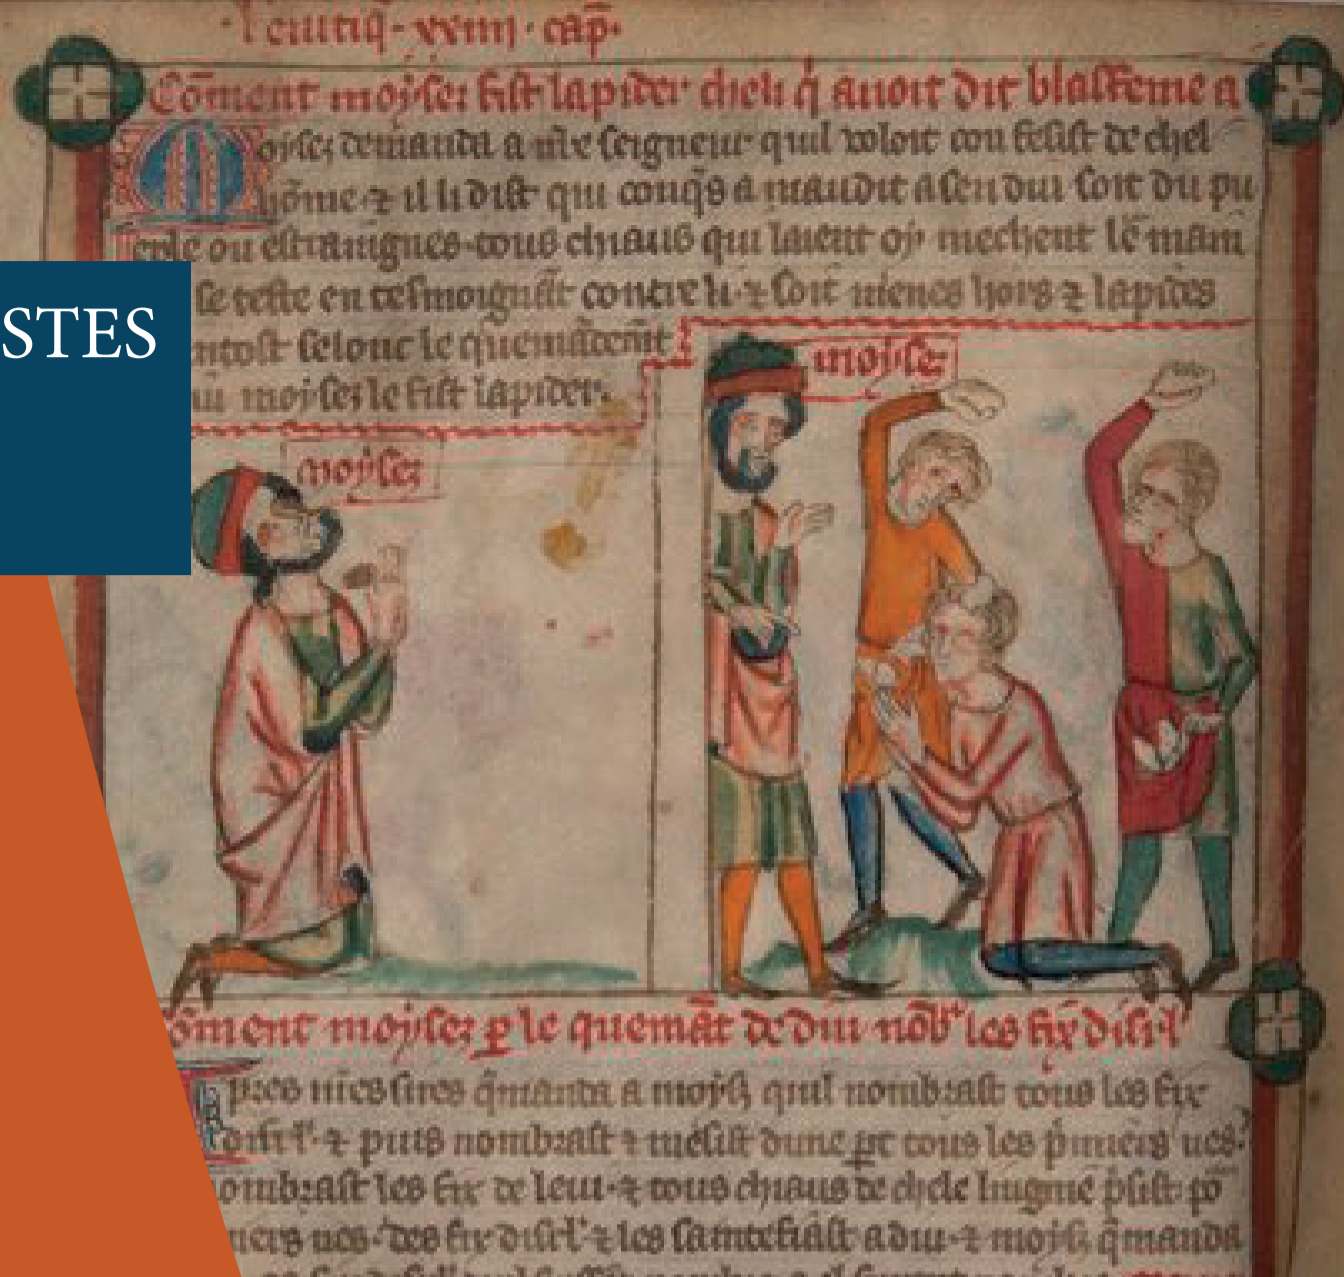 leuitiq̄· xxiiij · cap̄·
Cōment moẏses fist lapider cheli q̄ auoit dit blasfeme a
Moẏses demanda a nr̄e seigneur quil voloit con fesist de chel
hōme· ⁊ il li dist qui conq̄s a maudit a sen diu soit du pu
eple ou estraingnes· tous chiaus qui laient oẏ mechent lē main
STES
se teste en tesmoignāt contre li· ⁊ soit menes hors ⁊ lapides
ntost selonc le quemādemt̄
moẏses le fist lapider·
moẏses
moẏses
Cōment moẏses ꝑ le quemāt de diu nōb les fix disrl
Apres nr̄es sires q̄manda a moẏs quil nombrast tous les fix
disrl· ⁊ puis nombrast ⁊ mesist dune part tous les p̄miers nes·
ombrast les fix de leui· ⁊ tous chiaus de chele lingnie
iers nes· des fix disrl ⁊ les saintefiast a diu· ⁊ moẏs q̄manda